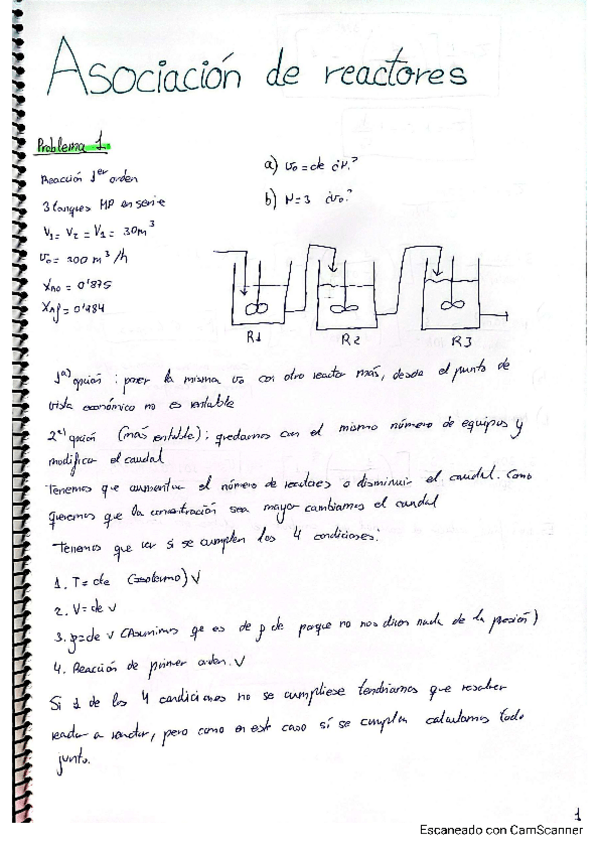 Asociación de reactores
Problema 1.
Reacción 1er orden
3 tanques MP en serie
V1 = V2 = V1 = 30m3
v0 = 200 m3/h
XA0 = 0'875
XAf = 0'984
a) v0 = cte ¿N?
b) N=3 ¿v0?
R1 R2 R3
1a) opción: poner la misma v0 con otro reactor más, desde el punto de
vista económico no es rentable
2a) opción (más rentable): quedarnos con el mismo número de equipos y
modificar el caudal
Tenemos que aumentar el número de reactores o disminuir el caudal. Como
queremos que la concentración sea mayor cambiamos el caudal
Tenemos que ver si se cumplen las 4 condiciones:
1. T = cte (isotermo) √
2. V = cte √
3. ρ = cte √ (Asumimos qe es de ρ cte porque no nos dicen nada de la presión)
4. Reacción de primer orden. √
Si 1 de las 4 condiciones no se cumpliese tendríamos que resolver
reactor a reactor, pero como en este caso sí se cumplen calculamos todo
junto.
1
Escaneado con CamScanner